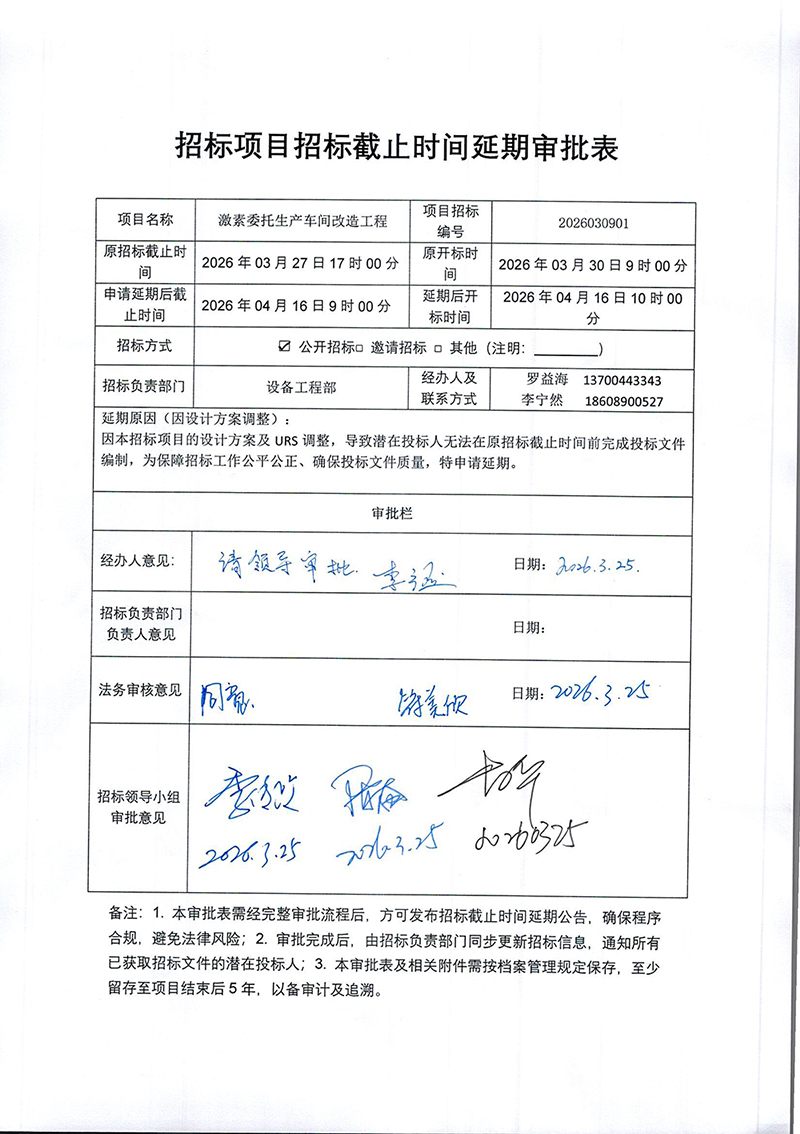 招标项目招标截止时间延期审批表
项目名称
激素委托生产车间改造工程
项目招标
编号
2026030901
原招标截止时
间
2026 年 03 月 27 日 17 时 00 分
原开标时
间
2026 年 03 月 30 日 9 时 00 分
申请延期后截
止时间
2026 年 04 月 16 日 9 时 00 分
延期后开
标时间
2026 年 04 月 16 日 10 时 00
分
招标方式
☑ 公开招标□ 邀请招标 □ 其他（注明：________）
招标负责部门
设备工程部
经办人及
联系方式
罗益海 13700443343
李宁然 18608900527
延期原因（因设计方案调整）：
因本招标项目的设计方案及 URS 调整，导致潜在投标人无法在原招标截止时间前完成投标文件
编制，为保障招标工作公平公正、确保投标文件质量，特申请延期。
审批栏
经办人意见：
请领导审批.
日期：2026.3.25.
招标负责部门
负责人意见
日期：
法务审核意见
同意.
日期：2026.3.25
招标领导小组
审批意见
2026.3.25
2026.3.25
20260325
备注：1. 本审批表需经完整审批流程后，方可发布招标截止时间延期公告，确保程序
合规，避免法律风险；2. 审批完成后，由招标负责部门同步更新招标信息，通知所有
已获取招标文件的潜在投标人；3. 本审批表及相关附件需按档案管理规定保存，至少
留存至项目结束后 5 年，以备审计及追溯。